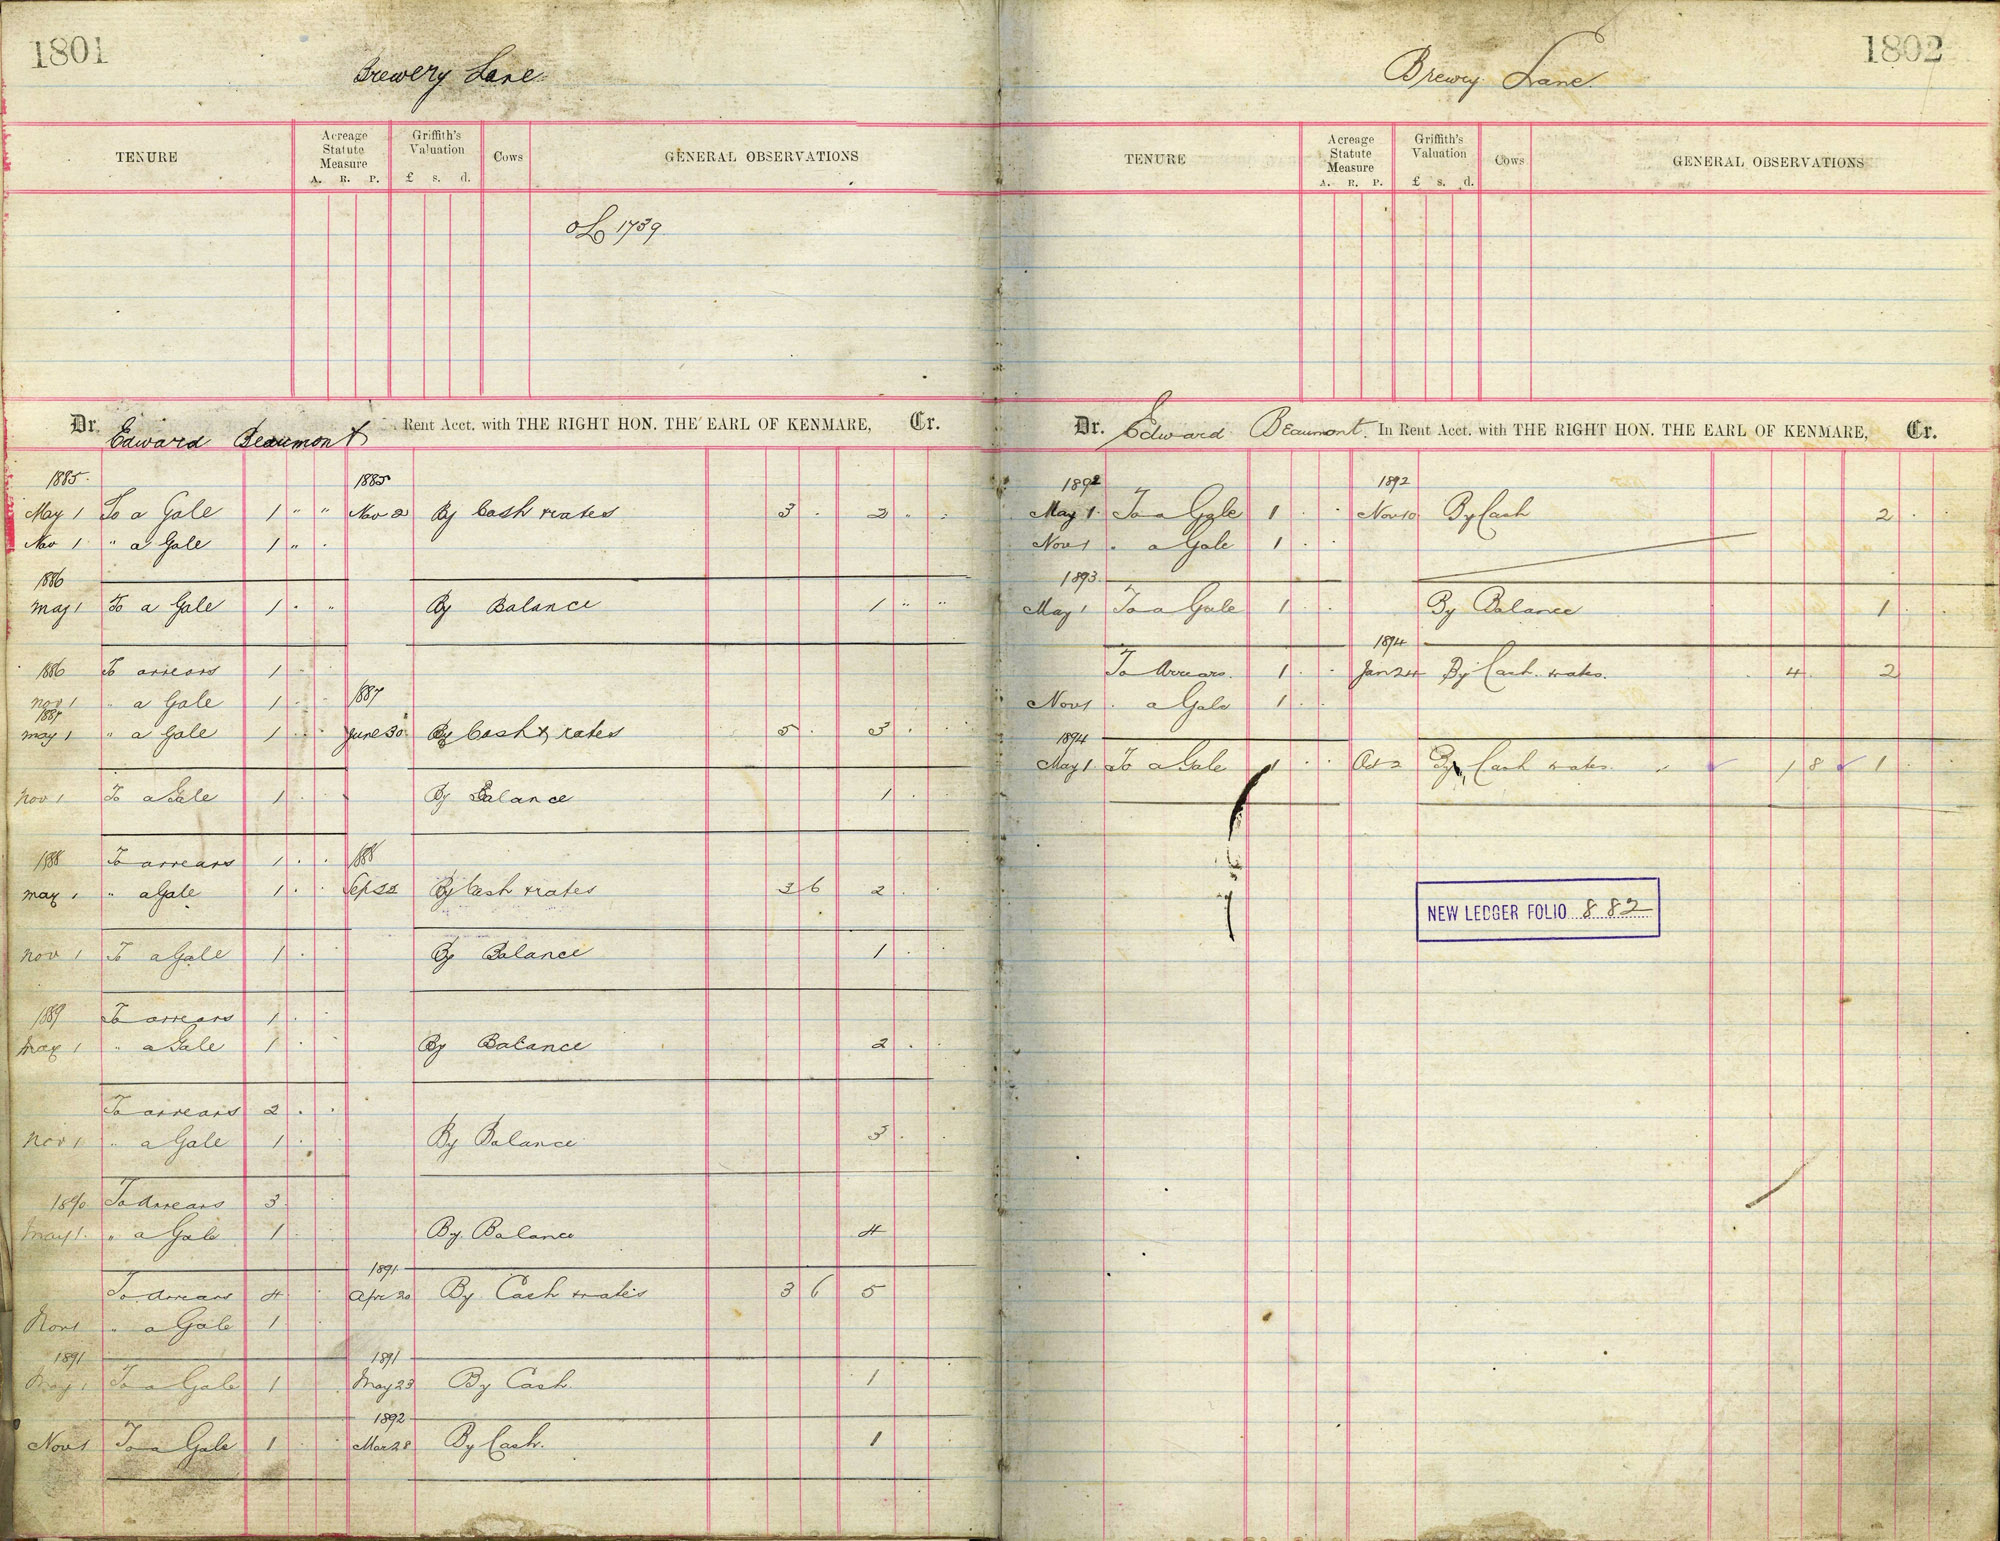 1801
Brewery Lane
TENURE
Acreage Statute Measure
A. R. P.
Griffith's Valuation
£ s. d.
Cows
GENERAL OBSERVATIONS
OL 1739
Dr. Edward Beaumont Rent Acct. with THE RIGHT HON. THE EARL OF KENMARE, Cr.
1885. 1885
May 1 To a Gale 1 " " Nov 2 By Cash & rates 3 . 2 . .
Nov 1 " a Gale 1 " .
1886
May 1 To a Gale 1 . " By Balance 1 " "
1886 To arrears 1
Nov 1 " a Gale 1 . 1887
1887
May 1 " a Gale 1 . . June 30 By Cash & rates 5 . 3 . .
Nov 1 To a Gale 1 . By Balance 1 .
1888 To arrears 1 . . 1888
May 1 " a Gale 1 . . Sep 22 By Cash & rates 3 6 2 . .
Nov 1 To a Gale 1 . By Balance 1 .
1889 To arrears 1 .
May 1 " a Gale 1 . By Balance 2 . .
To arrears 2 . .
Nov 1 " a Gale 1 . By Balance 3 . .
1890 To Arrears 3
May 1. " a Gale 1 . By Balance 4
1891
To Arrears 4 . Apr 20 By Cash & rates 3 6 5
Nov 1 " a Gale 1
1891 1891
May 1 To a Gale 1 May 23 By Cash. 1
1892
Nov 1 To a Gale 1 Mar 28 By Cash. 1
1802
Brewery Lane.
TENURE
Acreage Statute Measure
A. R. P.
Griffith's Valuation
£ s. d.
Cows
GENERAL OBSERVATIONS
Dr. Edward Beaumont. In Rent Acct. with THE RIGHT HON. THE EARL OF KENMARE, Cr.
1892 1892
May 1. To a Gale 1 . . Nov 10 By Cash 2 . .
Nov 1 " a Gale 1 . .
1893.
May 1 To a Gale 1 . . By Balance 1 . .
1894
To Arrears. 1 . . Jan 24 By Cash & rates. 4 . 2
Nov 1 " a Gale 1 . .
1894
May 1. To a Gale 1 . . Oct 2 By Cash & rates. " 1 8 1 . .
NEW LEDGER FOLIO 882